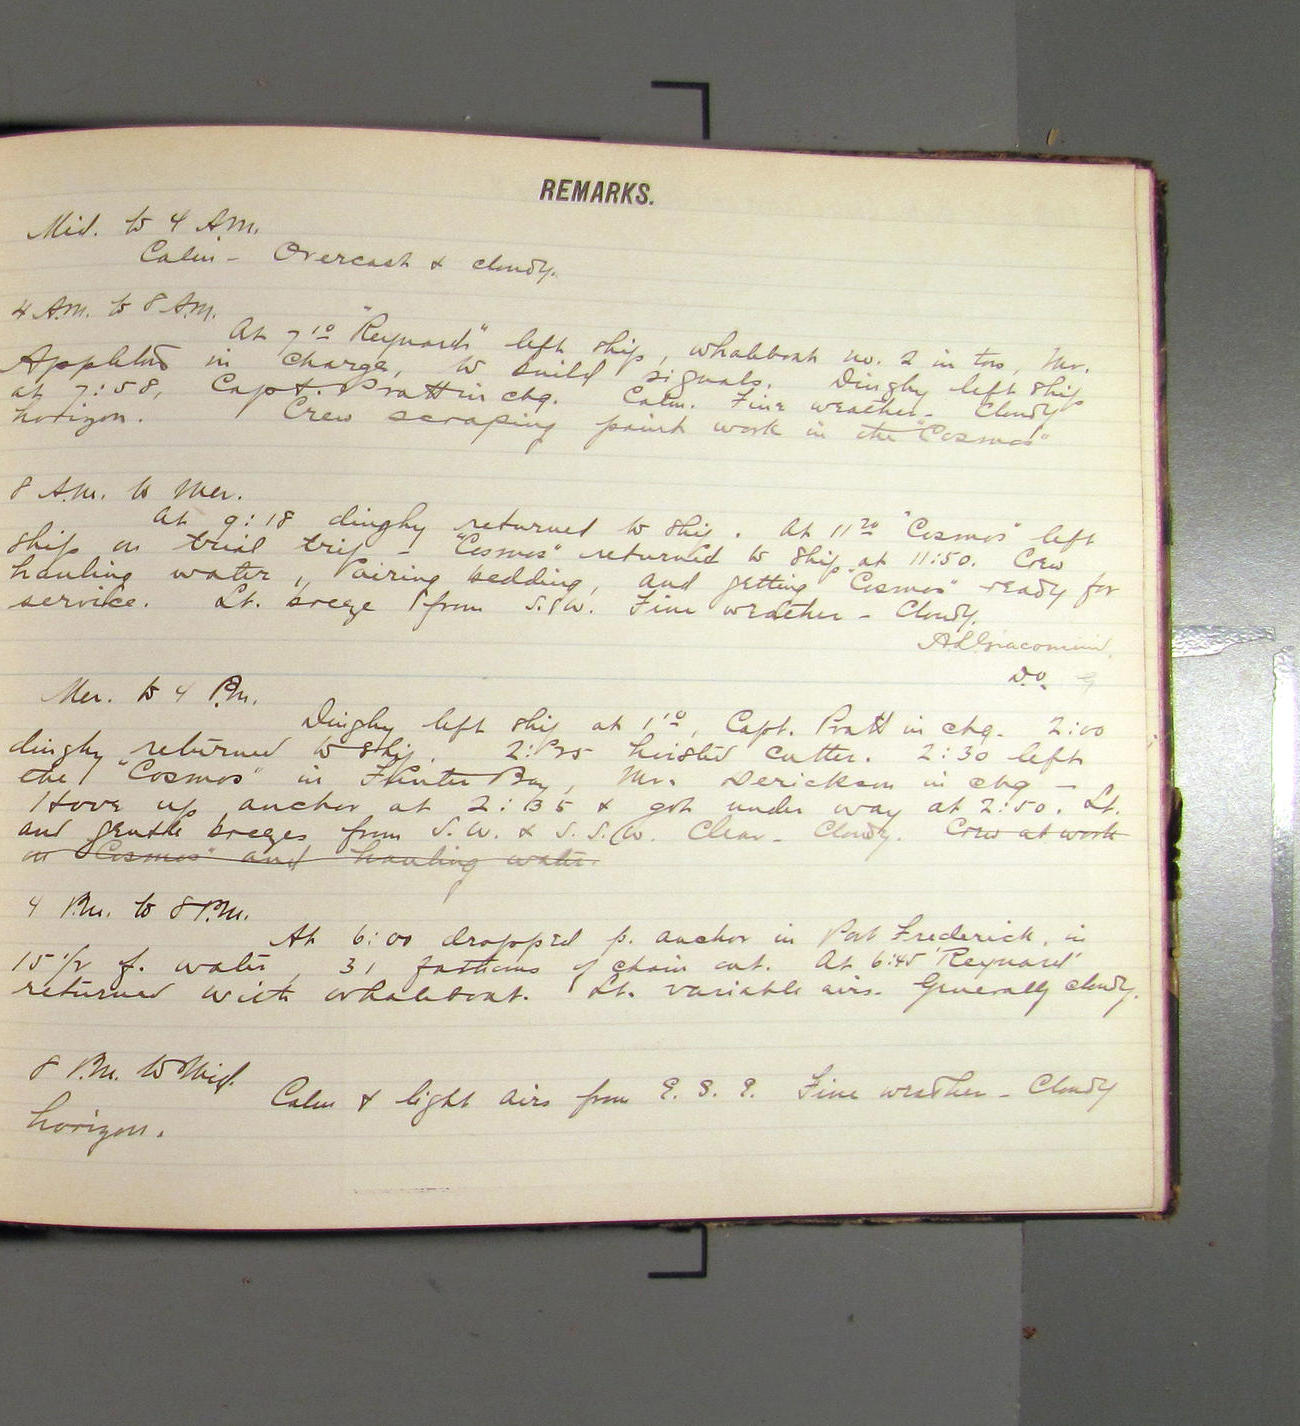 REMARKS.
Mid. to 4 A.M.
Calm - Overcast & cloudy.
4 A.M. to 8 A.M.
At 7 10 "Reynard" left ship, whaleboat no. 2 in tow, Mr.
Appleton in charge, to build signals. Dinghy left ship
at 7:58, Capt. Pratt in chg. Calm. Fine weather - Cloudy
horizon. Crew scraping paint work in the "Cosmos"
8 A.M. to Mer.
At 9:18 dinghy returned to ship. At 11 20 "Cosmos" left
ship on trial trip - "Cosmos" returned to ship at 11:50. Crew
hauling water, airing bedding, and getting "Cosmos" ready for
service. Lt. breeze from S.W. Fine weather - Cloudy.
A. L. Giacomini
D.O.
Mer. to 4 P.M.
Dinghy left ship at 1 10, Capt. Pratt in chg. 2:00
dinghy returned to ship. 2:25 hoisted cutter. 2:30 left
the "Cosmos" in Bay, Mr. Derickson in chg -
Hove up anchor at 2:35 & got under way at 2:50. Lt.
and gentle breezes from S.W. & S.S.W. Clear - Cloudy. Crew at work
on "Cosmos" and hauling water.
4 P.M. to 8 P.M.
At 6:00 dropped p. anchor in Port Frederick, in
15 1/2 f. water, 31 fathoms of chain out. At 6:45 "Reynard"
returned with whaleboat. Lt. variable airs. Generally cloudy.
8 P.M. to Mid.
Calm & light airs from E. S. E. Fine weather - Cloudy
horizon.